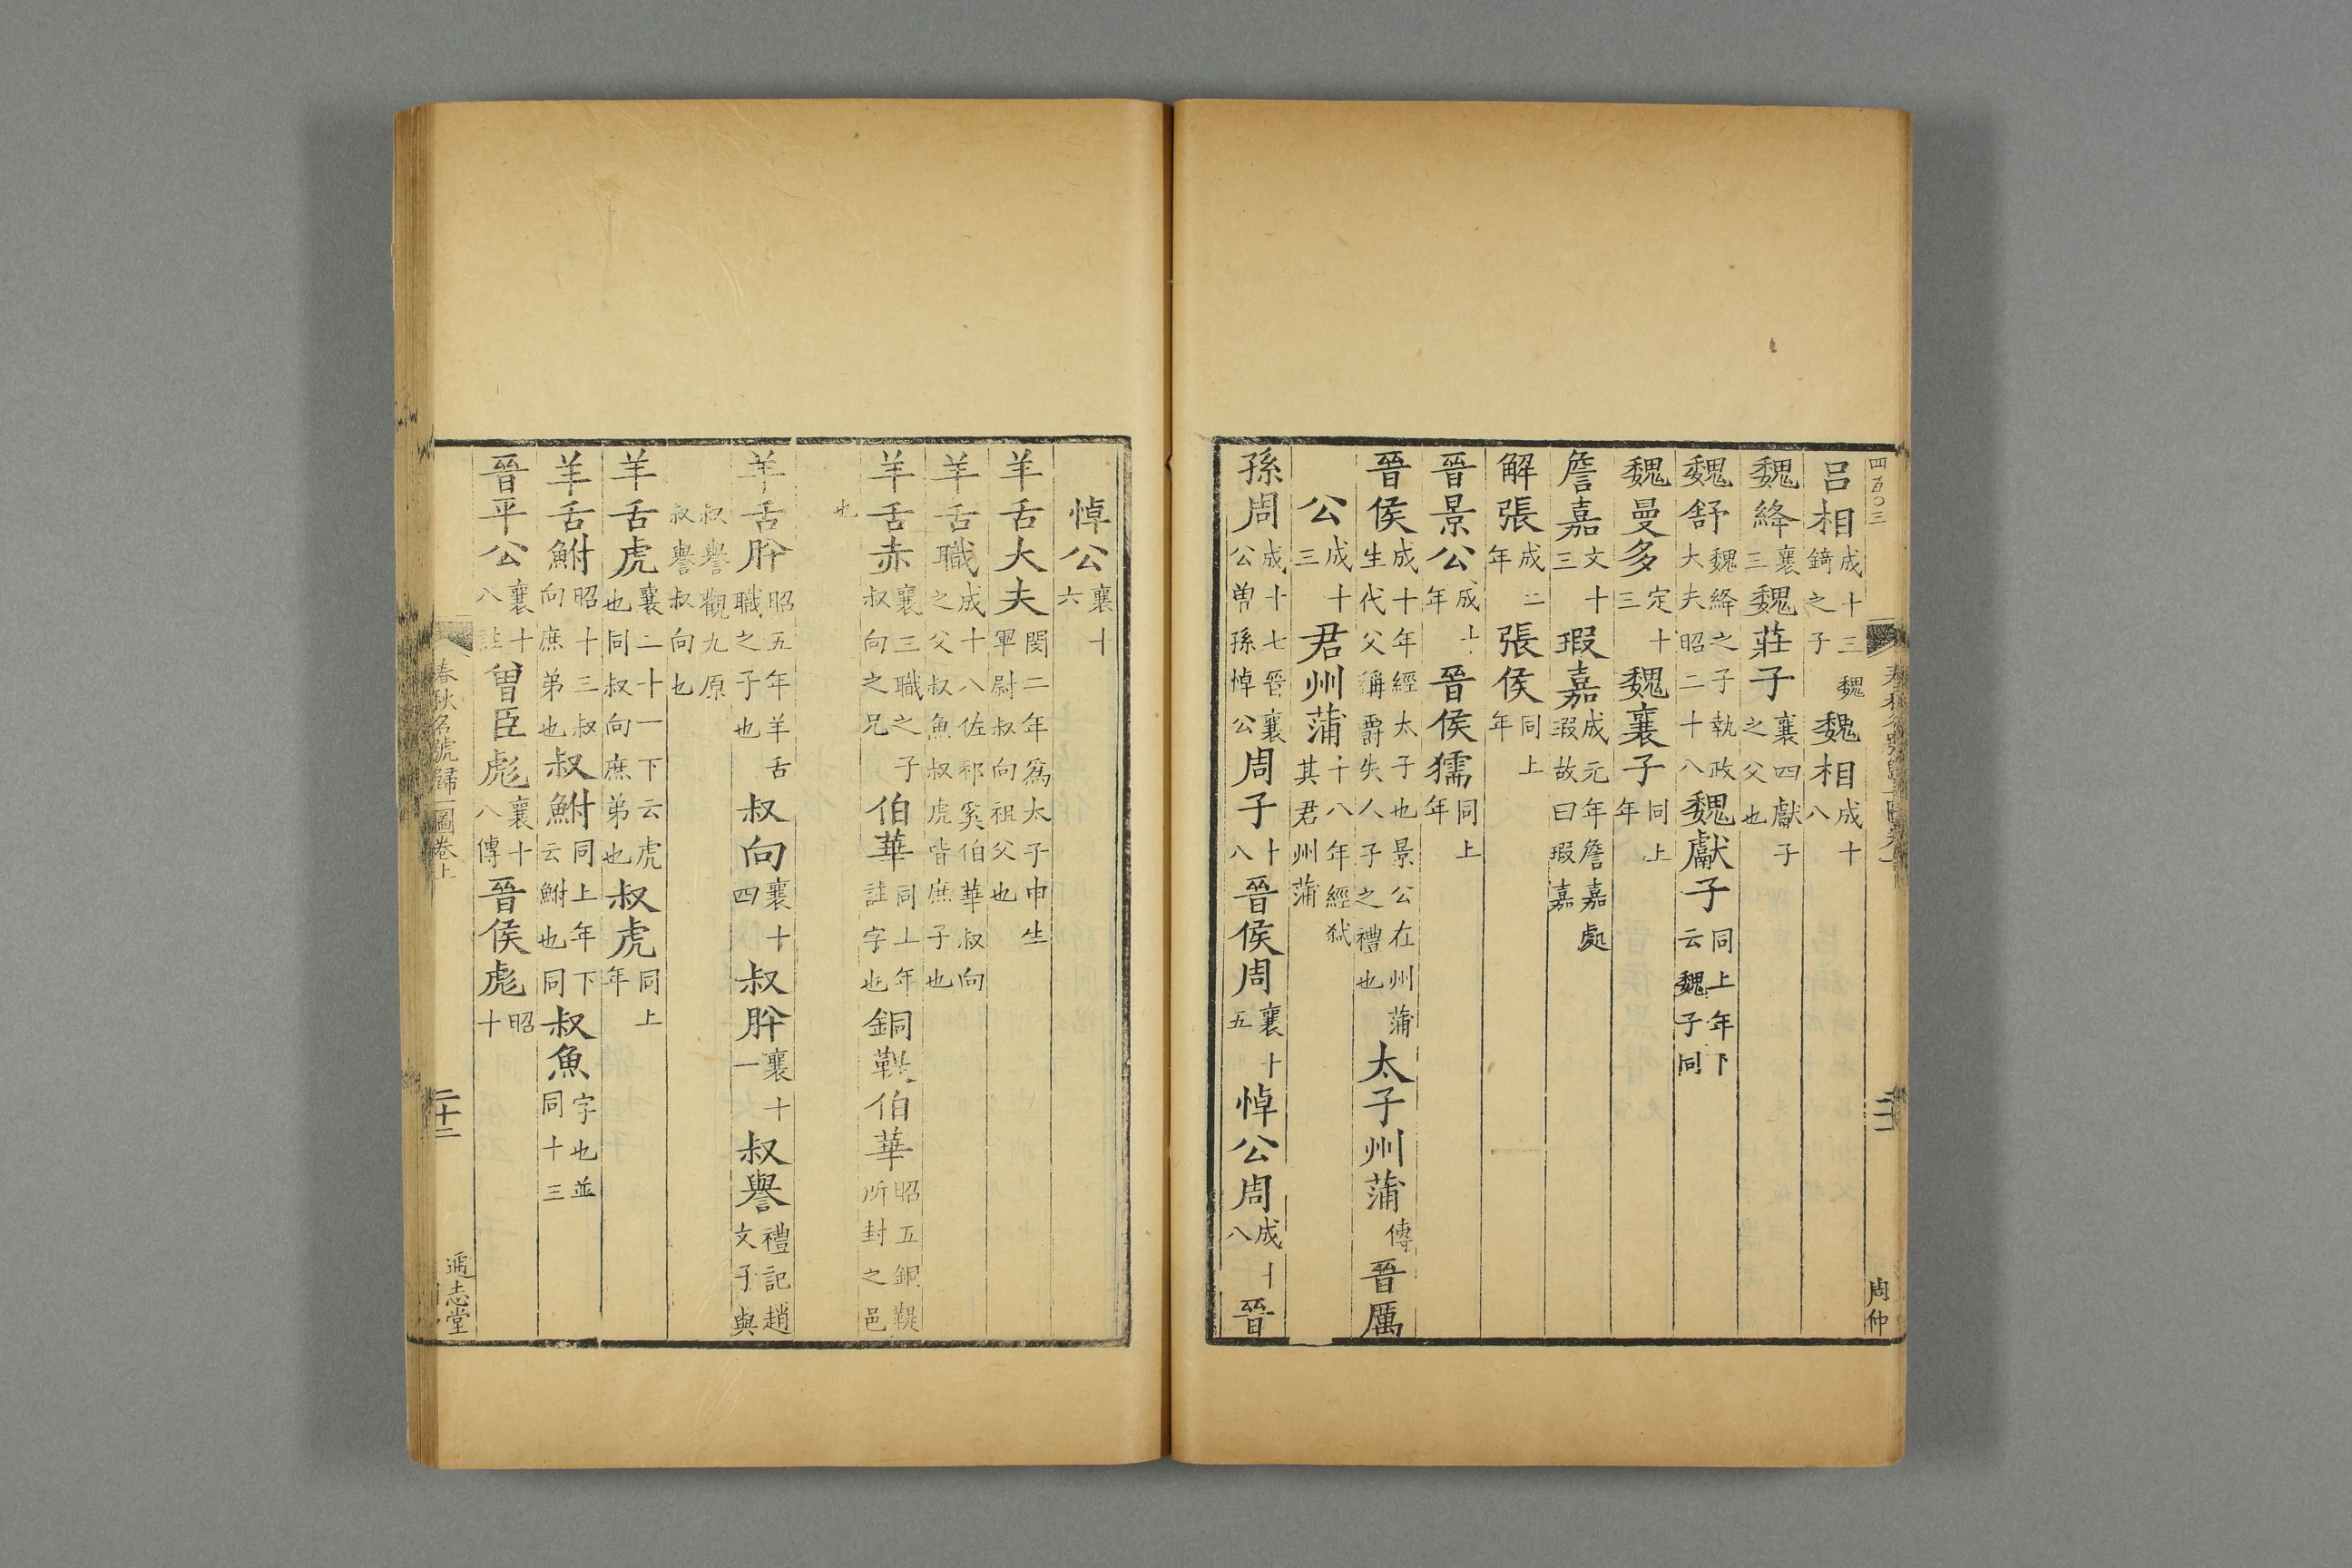 四百〇三
呂相成十三魏錡之子魏相成十八
魏絳襄三魏莊子襄四獻子之父也
魏舒魏絳之子執政大夫昭二十八魏獻子同上年下云魏子同
魏曼多定十三魏襄子同上年
詹嘉文十三瑕嘉成元年詹嘉處瑕故曰瑕嘉
解張成二年張侯同上年
晉景公成十年晉侯獳同上年
晉侯成十年經太子也景公在生代父稱爵失人子之禮也州蒲太子州蒲傳晉厲
公成十三君州蒲十八年經弒其君州蒲
孫周成十七晉襄公曽孫悼公周子十八晉侯周襄十五悼公周成十八晉
周仲
悼公襄十六
羊舌大夫閔二年為太子申生軍尉叔向祖父也
羊舌職成十八佐祁奚伯華叔向之父叔魚叔虎皆庶子也
羊舌赤襄三職之子叔向之兄伯華同上年註字也銅鞮伯華昭五銅鞮所封之邑
也
羊舌肸昭五年羊舌職之子也叔向襄十四叔肸襄十一叔譽禮記趙文子與
叔譽觀九原叔譽叔向也
羊舌虎襄二十一下云虎也同叔向庶弟也叔虎同上年
羊舌鮒昭十三叔向庶弟也叔鮒同上年下云鮒也同叔魚字也並同十三
晉平公襄十八註曽臣彪襄十八傳晉侯彪昭十
春秋名號歸一圖卷上
二十二
通志堂